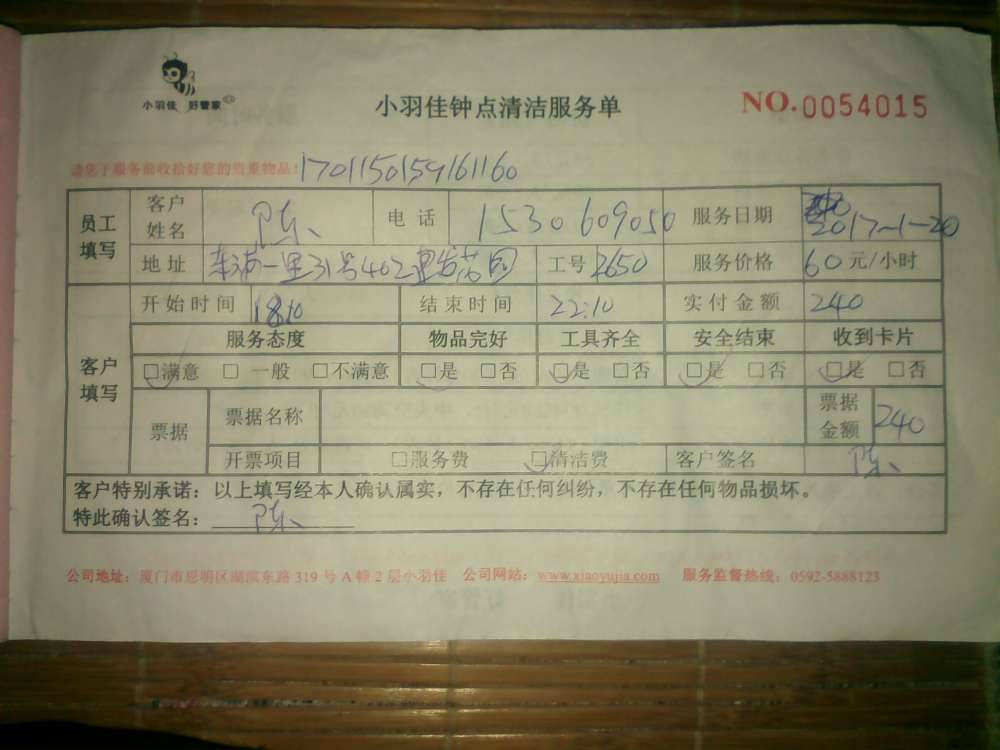 小羽佳 好管家
小羽佳钟点清洁服务单
NO.0054015
请您于服务前收拾好您的贵重物品! 1701150159161160
员工填写 客户姓名 陈 电话 1530609050 服务日期 2017-1-20
地址 东浦一里31号402建发花园 工号 2650 服务价格 60元/小时
客户填写 开始时间 18:10 结束时间 22:10 实付金额 240
服务态度 物品完好 工具齐全 安全结束 收到卡片
□满意 □一般 □不满意 □是 □否 □是 □否 □是 □否 □是 □否
票据 票据名称 票据金额 240
开票项目 □服务费 □清洁费 客户签名 陈
客户特别承诺:以上填写经本人确认属实,不存在任何纠纷,不存在任何物品损坏。
特此确认签名: 陈
公司地址:厦门市思明区湖滨东路319号A幢2层小羽佳 公司网站:www.xiaoyujia.com 服务监督热线:0592-5888123